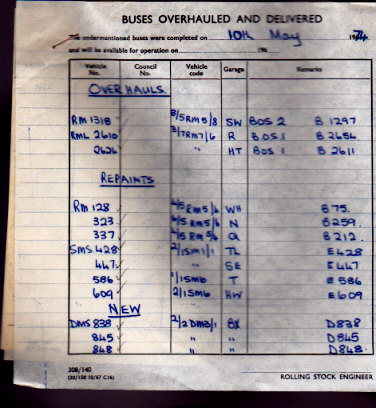 BUSES OVERHAULED AND DELIVERED
The undermentioned buses were completed on 10th May 1974
and will be available for operation on 196
Vehicle No. Council No. Vehicle code Garage Remarks
OVERHAULS.
RM 1318 8/5RM5/8 SW BOS 2 B 1297
RML 2610 3/7RM7/6 R B.O.S 1 B 2654
2626 " HT BOS 1 B 2611
REPAINTS
RM 128 4/5RM5/6 WH B75.
323 4/5 RM5/6 N B259.
337 4/5 RM 5/6 Q B212.
SMS 428 2/1SM1/1 TL E428
447 " SE E447
586 1/1SM6 T E 586
609 2/1SM6 HW E609
NEW
DMS 838 2/2DM3/1 BX D838
845 " " D845
848 " " D848.
308/140
(20/150 10/67 C16) ROLLING STOCK ENGINEER